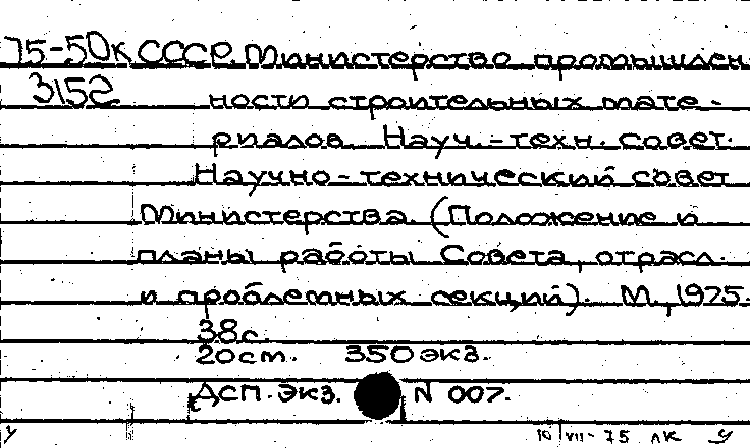 75-50к СССР. Министерство промышлен
3152 ности строительных мате-
риалов Науч.-техн. совет.
Научно-технический совет
Министерства. (Положение и
планы работы Совета, отрасл.
и проблемных секций). М., 1975.
38с.
20см. 350 экз.
ДСП. Экз. N 007.
10/VII-75 лк